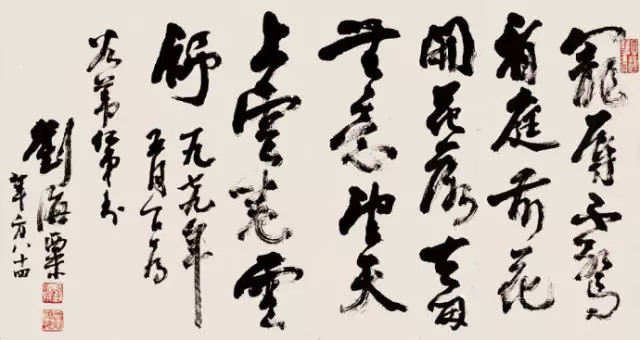 寵辱不驚
看庭前花
開花落去留
無意望天
上雲卷雲
舒
一九七九年
五月
谷葦
劉海粟
年方八十四